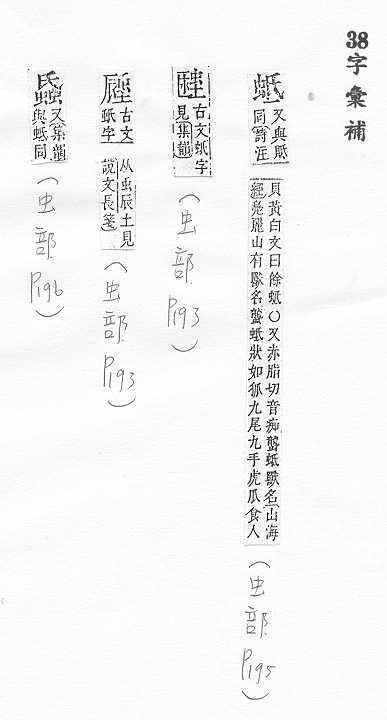 38字彙補
蚳
又與貾
同詩注
貝黃白文曰餘蚳〇又赤脂切音痴蠪蚳獸名山海
經鳧麗山有獸名蠪蚳狀如狐九尾九手虎爪食人
（虫部P195）
古文蚳字
見集韻
（虫部P193）
古文
蚳字
从虫辰土見
說文長箋
（虫部P193）
又集韻
與蚳同
（虫部P196）